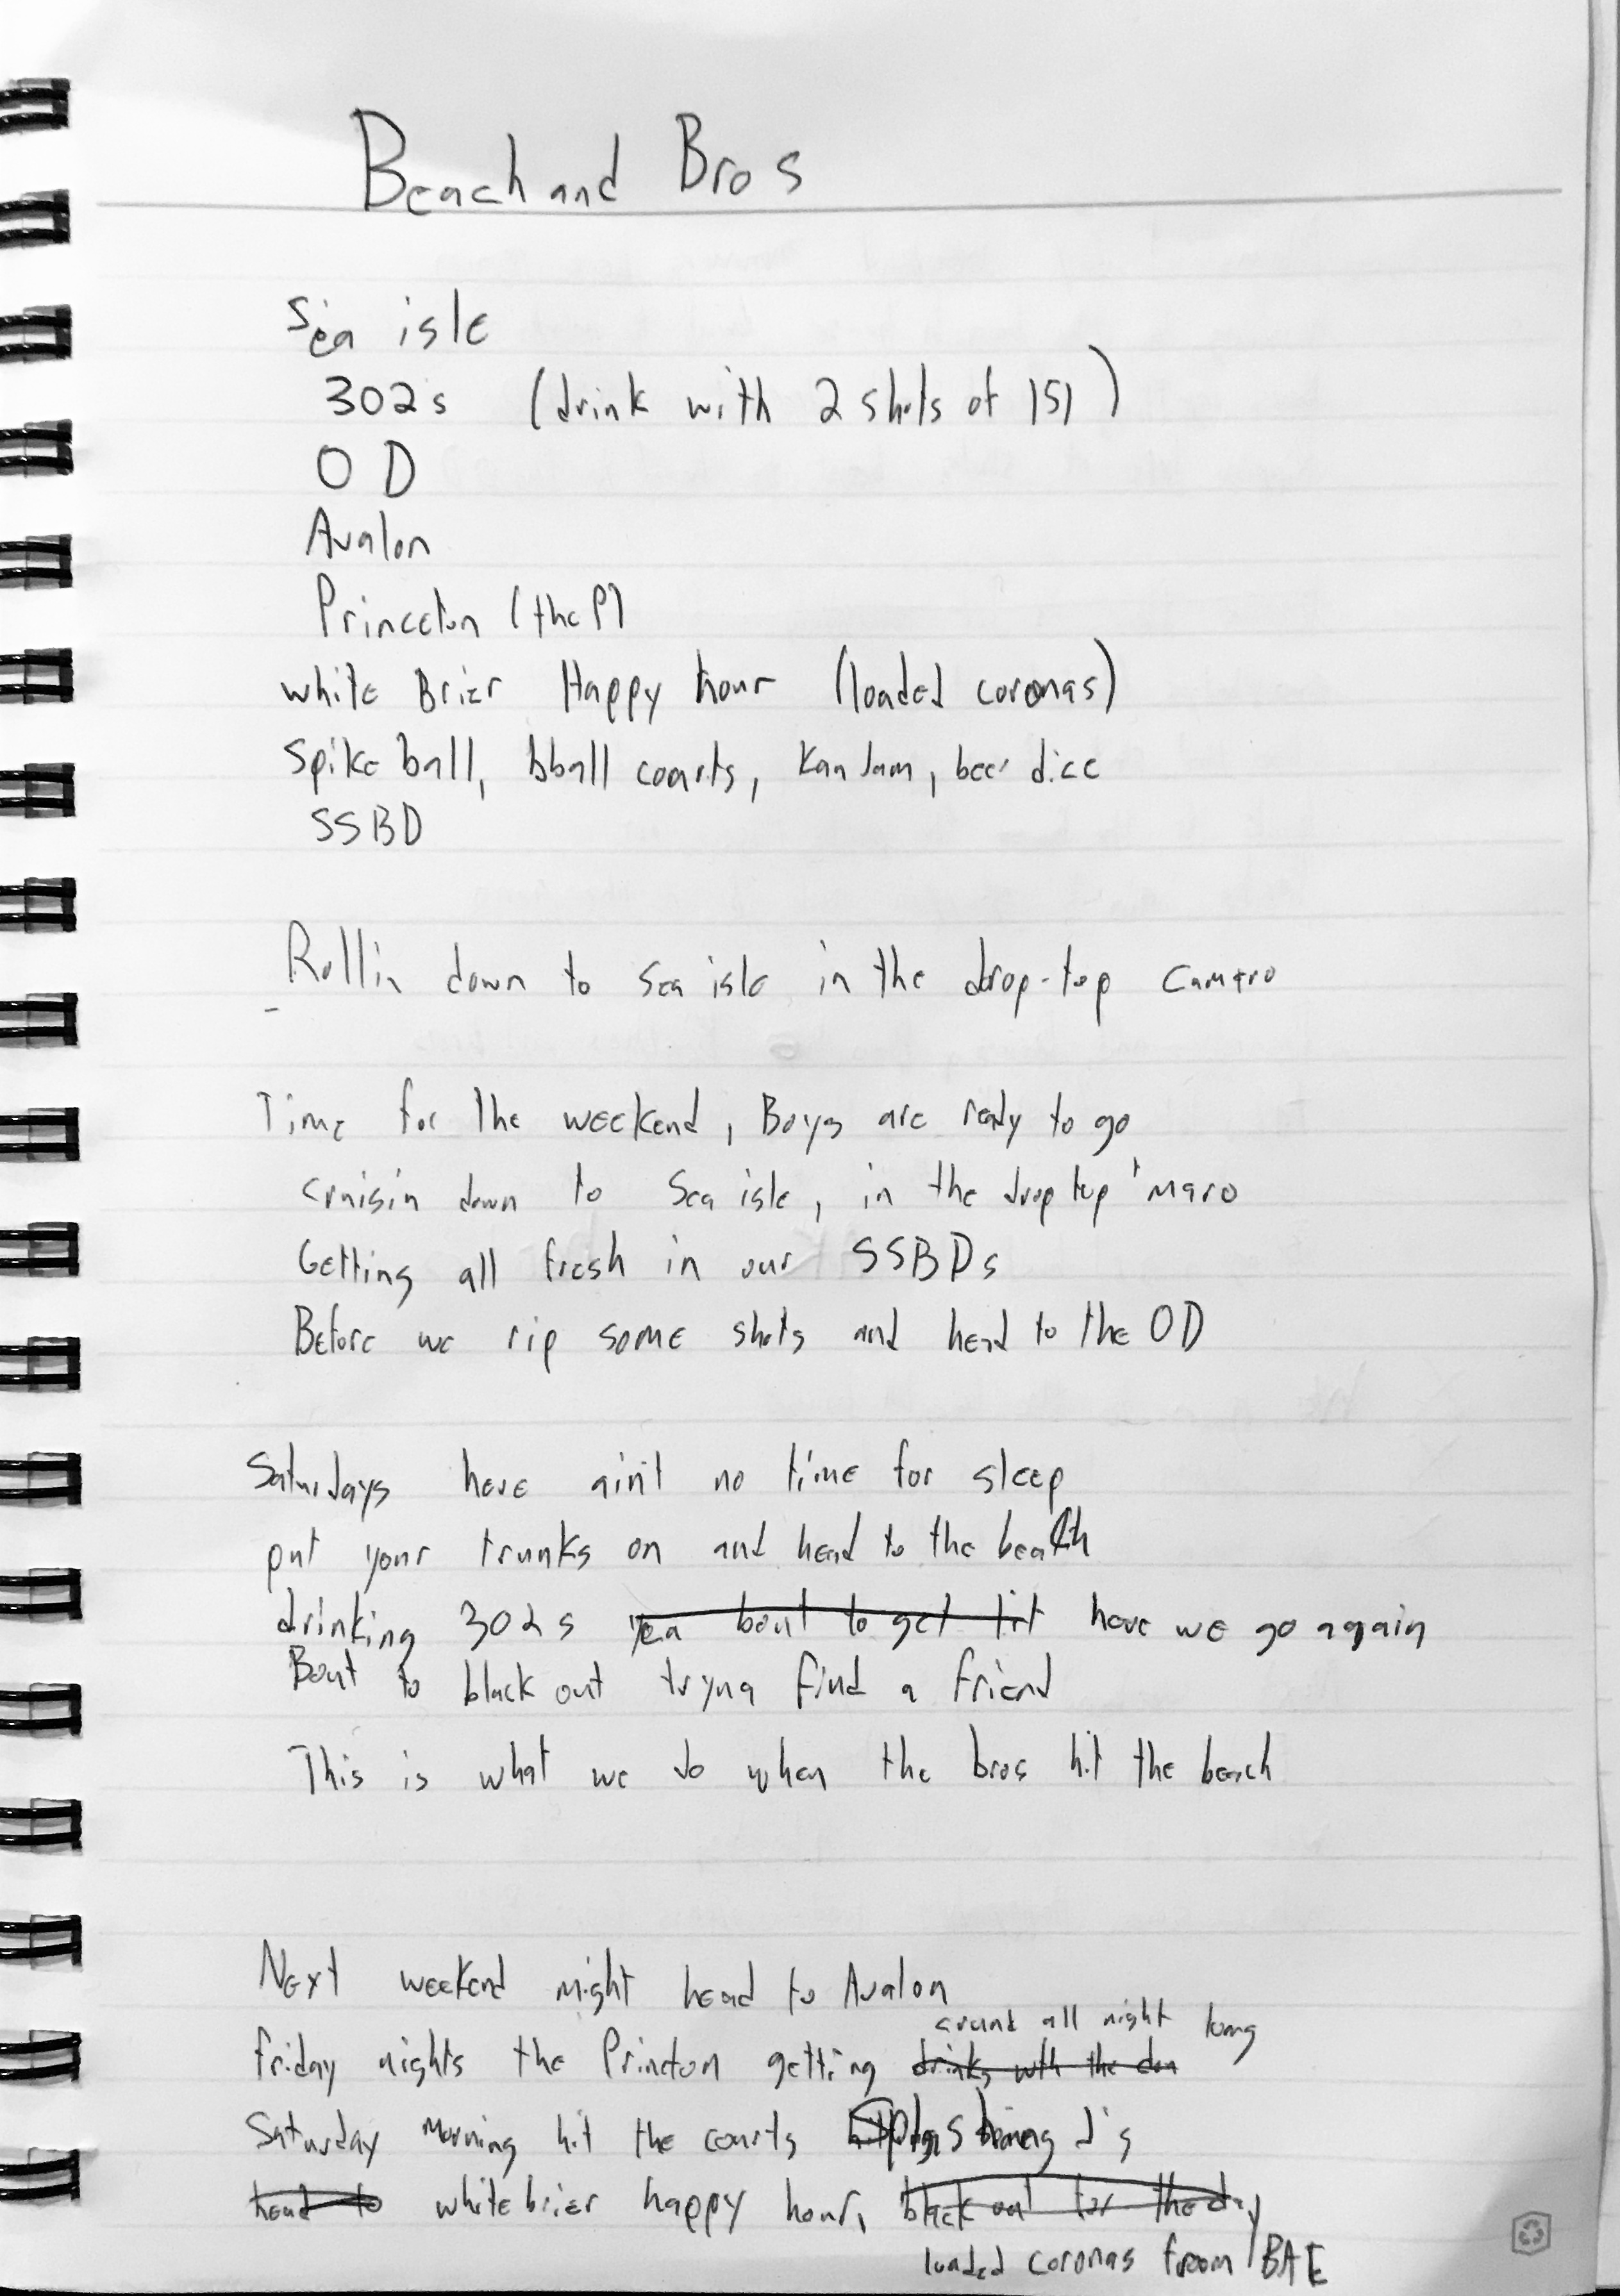 Beach and Bros
Sea isle
302s (drink with 2 shots of 151)
OD
Avalon
Princeton (the P)
white Brier Happy hour (loaded coronas)
Spike ball, bball coarts, Kan Jam, beer dice
SSBD
Rollin down to Sea isle in the drop-top camaro
Time for the weekend, Boys are ready to go
cruisin down to Sea isle, in the drop top 'maro
Getting all fresh in our SSBDs
Before we rip some shots and head to the OD
Saturdays here ain't no time for sleep
put your trunks on and head to the beach
drinking 302s yea bout to get lit here we go again
Bout to black out tryna find a friend
This is what we do when the bros hit the beach
Next weekend might head to Avalon
around all night long
friday nights the Princton getting drinks with the don
Saturday morning hit the courts Splashing J's
head to whitebrier happy hour, black out for the day
loaded coronas from BAE